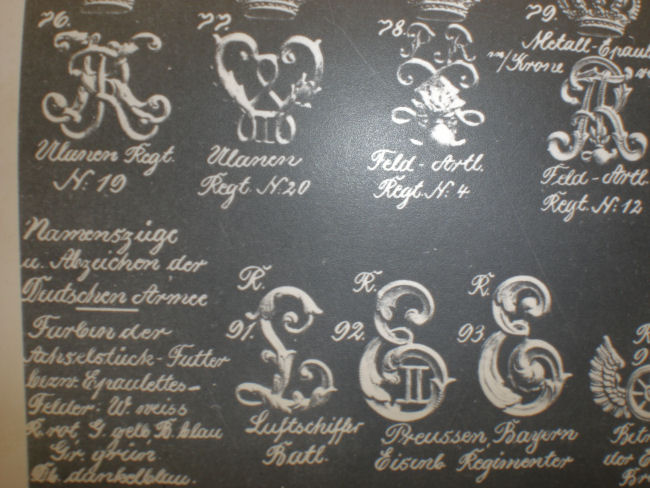 76.
77.
78.
79.
Metall-Epaul
m/Krone
Ulanen Regt.
N: 19
Ulanen
Regt. N: 20
Feld-Artl.
Regt. N: 4
Feld-Artl.
Regt. N: 12
Namenszüge
u. Abzeichen der
Deutschen Armee
Farben der
Achselstück-Futter
bezw. Epauletten-
Felder: W. weiss
R. rot, G. gelb, B. blau
Gr. grün.
Db. dunkelblau.
R.
91.
L
Luftschiffer
Batl.
R.
92.
E
II
R.
93
E
Preussen, Bayern
Eisenb Regimenter
R
9
Bet
der E
Br